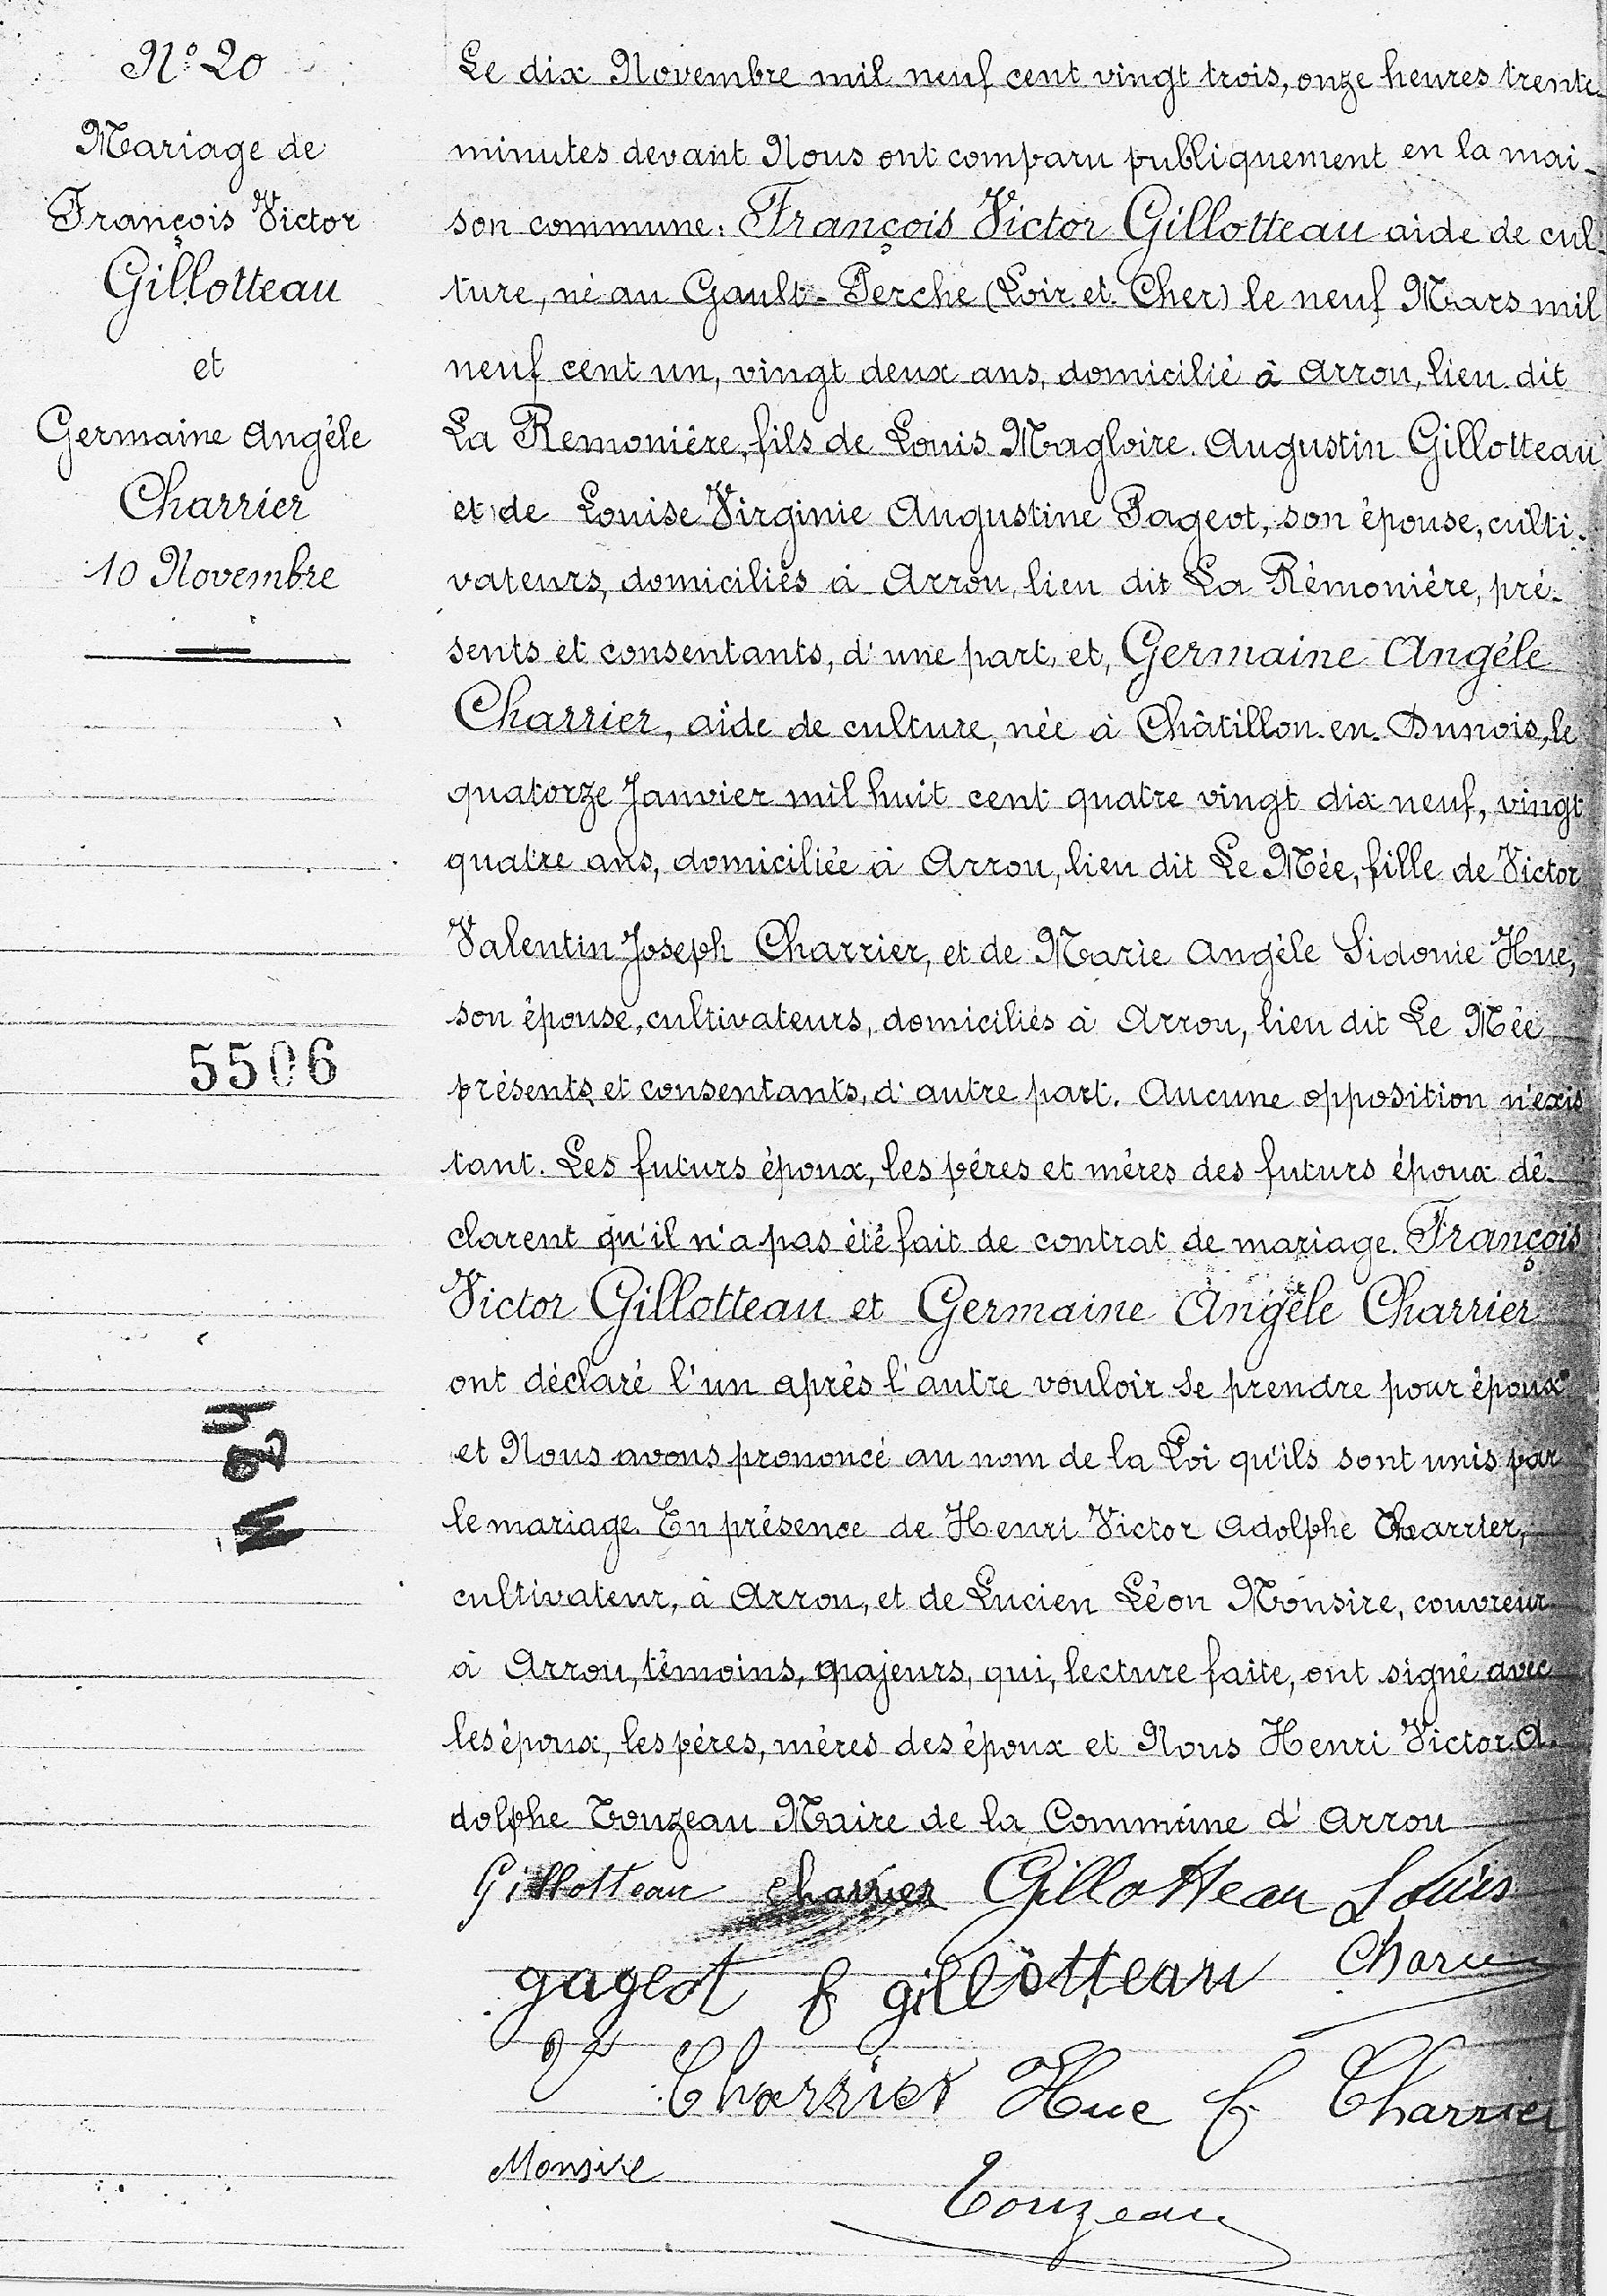 N° 20
Mariage de
François Victor
Gillotteau
et
Germaine Angèle
Charrier
10 Novembre
5506
Le dix Novembre mil neuf cent vingt trois, onze heures trente-
minutes devant Nous ont comparu publiquement en la mai-
son commune. François Victor Gillotteau aide de cul-
ture, né au Gault-Perche (Loir et Cher) le neuf Mars mil
neuf cent un, vingt deux ans, domicilié à Arrou, lieu dit
La Remonière, fils de Louis Magloire Augustin Gillotteau
et de Louise Virginie Augustine Pageot, son épouse, culti-
vateurs, domiciliés à Arrou, lieu dit La Rémonière, pré-
sents et consentants, d'une part, et, Germaine Angèle
Charrier, aide de culture, née à Châtillon-en-Dunois, le
quatorze Janvier mil huit cent quatre vingt dix neuf, vingt
quatre ans, domiciliée à Arrou, lieu dit Le Mée, fille de Victor
Valentin Joseph Charrier, et de Marie Angèle Sidonie Hue,
son épouse, cultivateurs, domiciliés à Arrou, lieu dit Le Mée
présents et consentants, d'autre part. Aucune opposition n'exis
tant. Les futurs époux, les pères et mères des futurs époux dé-
clarent qu'il n'a pas été fait de contrat de mariage. François
Victor Gillotteau et Germaine Angèle Charrier
ont déclaré l'un après l'autre vouloir se prendre pour époux
et Nous avons prononcé au nom de la Loi qu'ils sont unis par
le mariage. En présence de Henri Victor Adolphe Charrier,
cultivateur, à Arrou, et de Lucien Léon Monsire, couvreur
à Arrou, témoins, majeurs, qui, lecture faite, ont signé avec
les époux, les pères, mères des époux et Nous Henri Victor A-
dolphe Touzeau Maire de la Commune d'Arrou
Gillotteau Charrier Gillotteau Louis
gageot f gillotteau
V Charrier Hue f. Charrier
Monsire
Touzeau